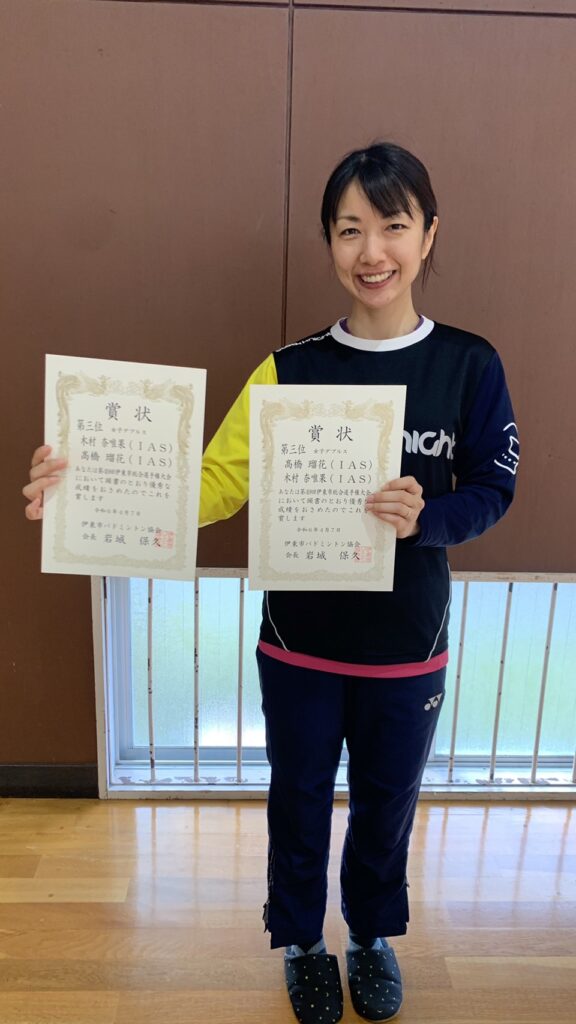 賞状
第三位 女子ダブルス
木村 奈唯果(IAS)
高橋 瑠花(IAS)
あなたは第48回伊東市総合選手権大会
において頭書のとおり優秀な
成績をおさめたのでこれを
賞します
令和6年4月7日
伊東市バドミントン協会
会長 岩城 保久
賞状
第三位 女子ダブルス
高橋 瑠花(IAS)
木村 奈唯果(IAS)
あなたは第48回伊東市総合選手権大会
において頭書のとおり優秀な
成績をおさめたのでこれを
賞します
令和6年4月7日
伊東市バドミントン協会
会長 岩城 保久